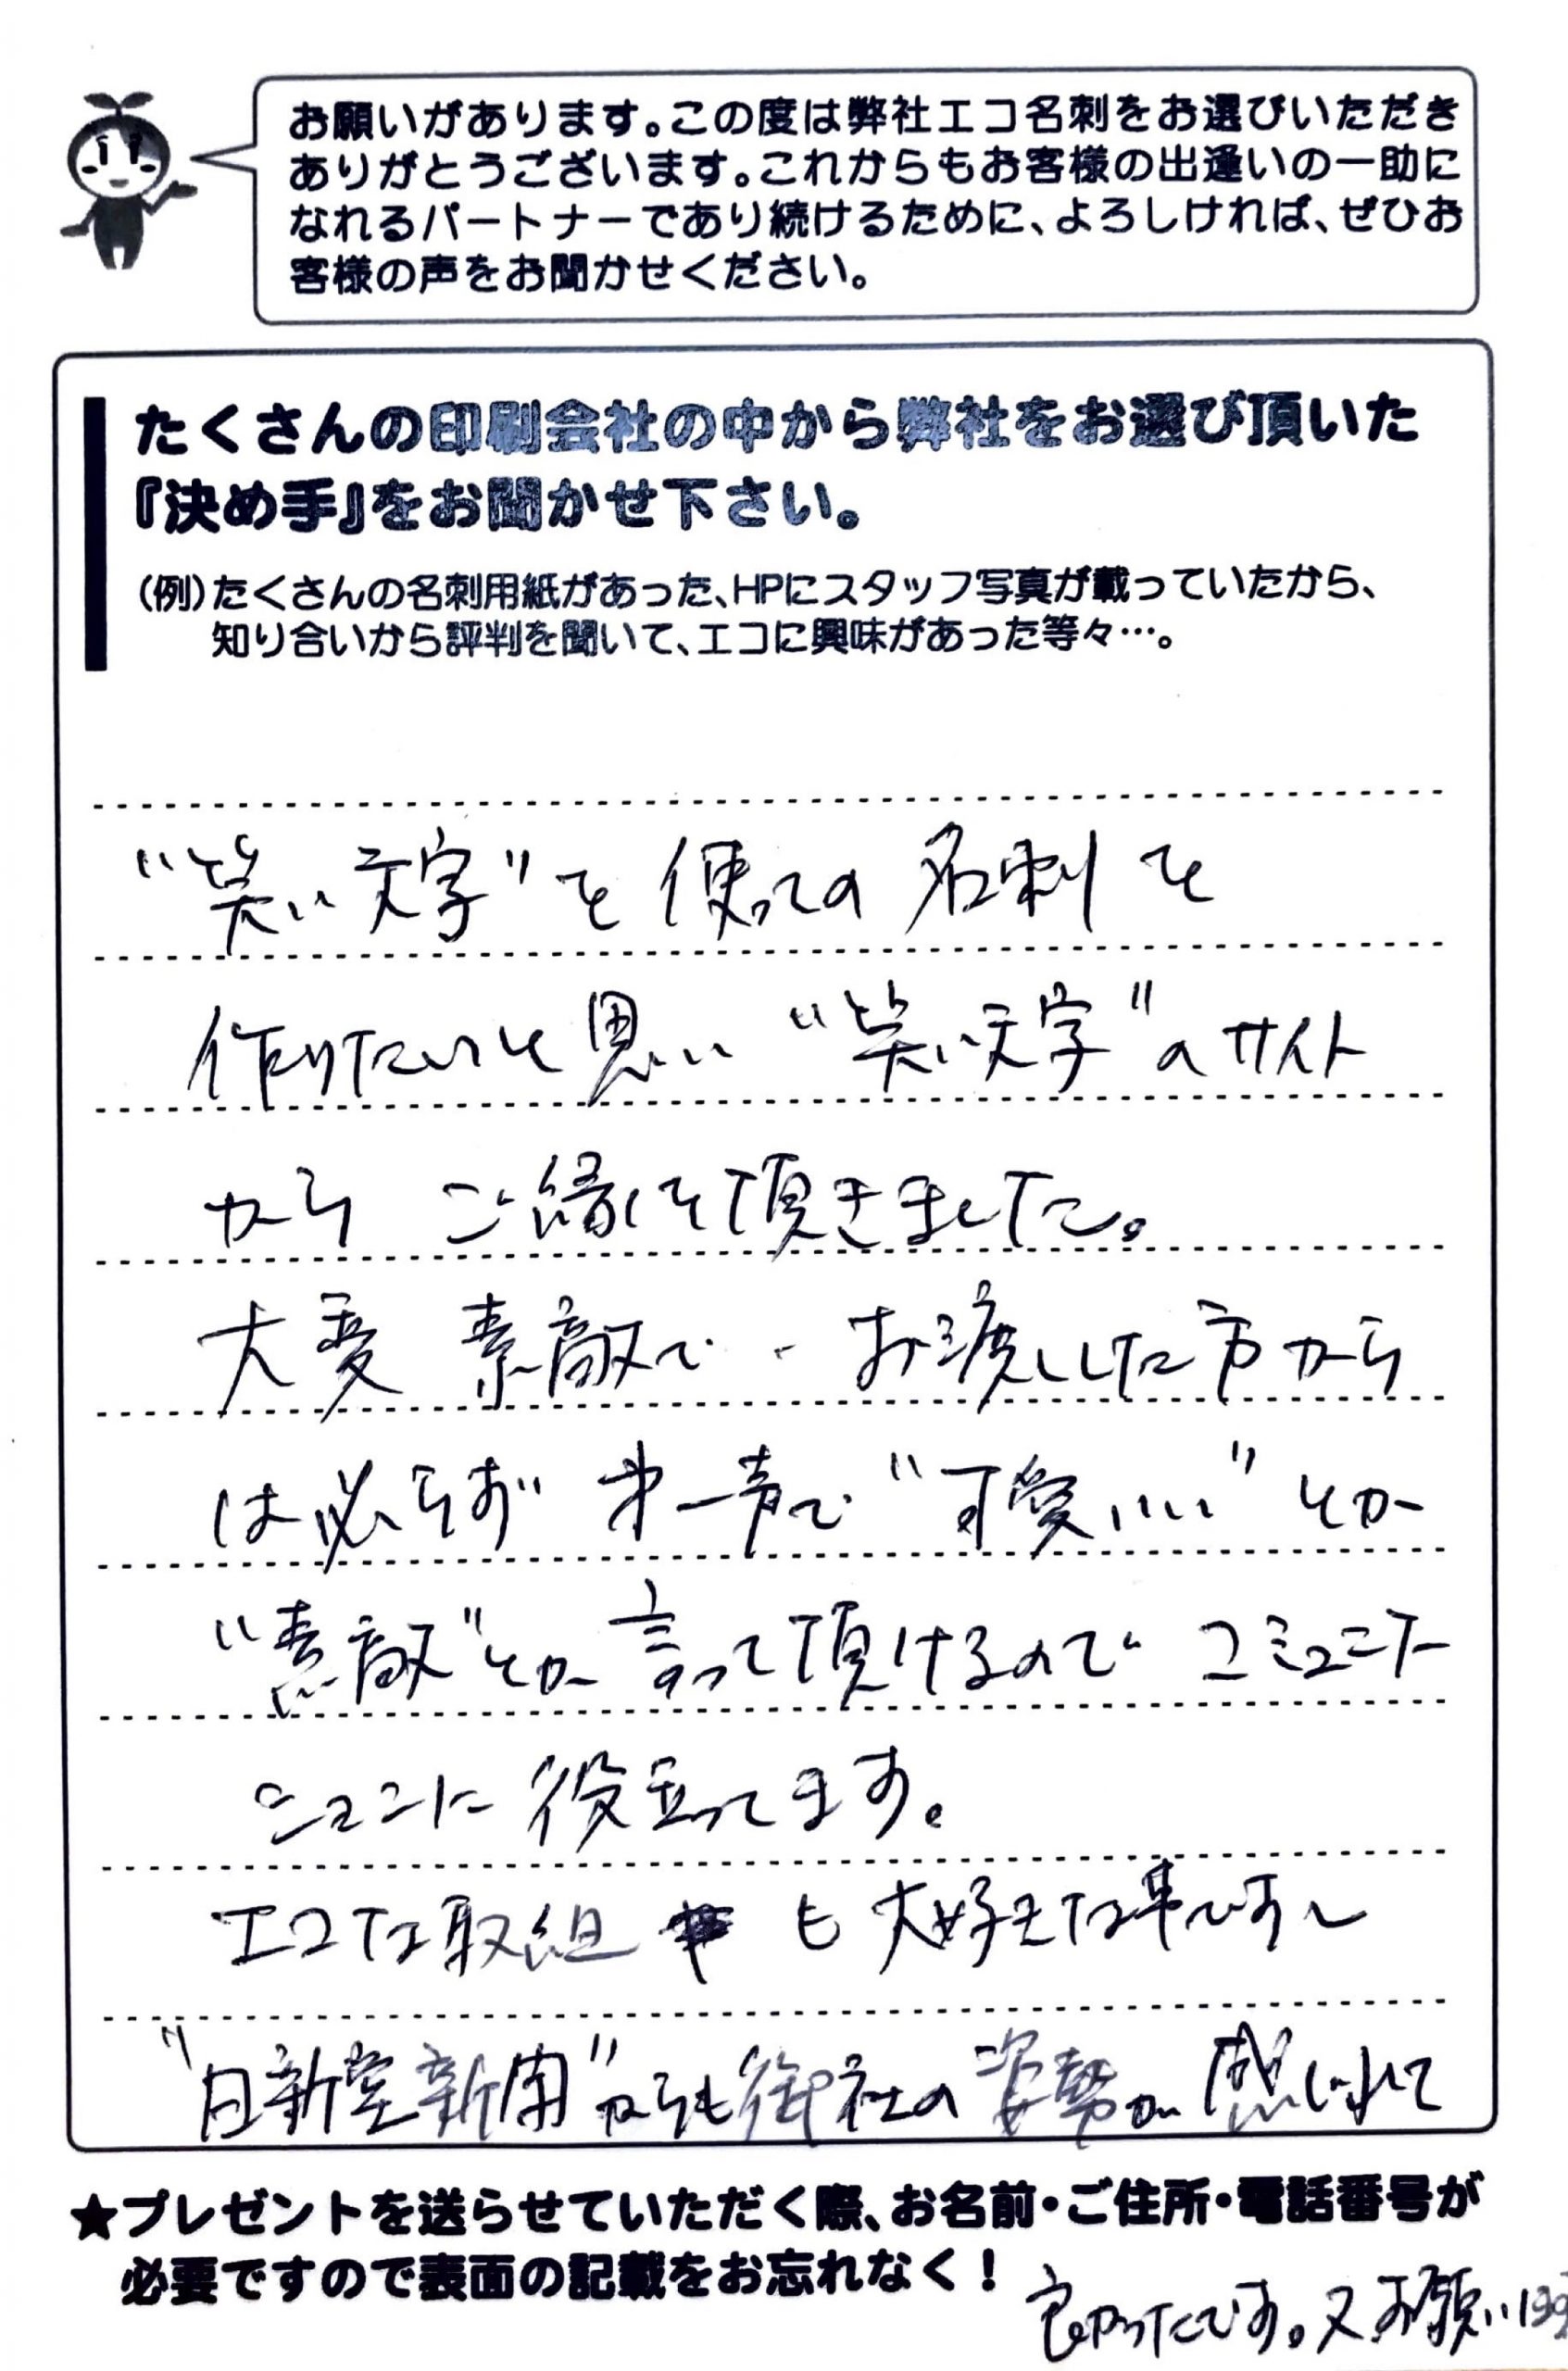 お願いがあります。この度は弊社エコ名刺をお選びいただき
ありがとうございます。これからもお客様の出逢いの一助に
なれるパートナーであり続けるために、よろしければ、ぜひお
客様の声をお聞かせください。
たくさんの印刷会社の中から弊社をお選び頂いた
『決め手』をお聞かせ下さい。
(例)たくさんの名刺用紙があった、HPにスタッフ写真が載っていたから、
知り合いから評判を聞いて、エコに興味があった等々…。
"笑い文字"を使っての名刺を
作りたいと思い"笑い文字"のサイト
から ご縁を頂きました。
大変 素敵で、お渡しした方から
は必らず 第一声で"可愛いい"とか
"素敵"とか言って頂けるので コミュニケー
ションに役立ってます。
エコな取組 も大好きな事ですし
"日新堂新聞"からも御社の姿勢が感じれて
★プレゼントを送らせていただく際、お名前・ご住所・電話番号が
必要ですので表面の記載をお忘れなく!
良かったです。又お願い